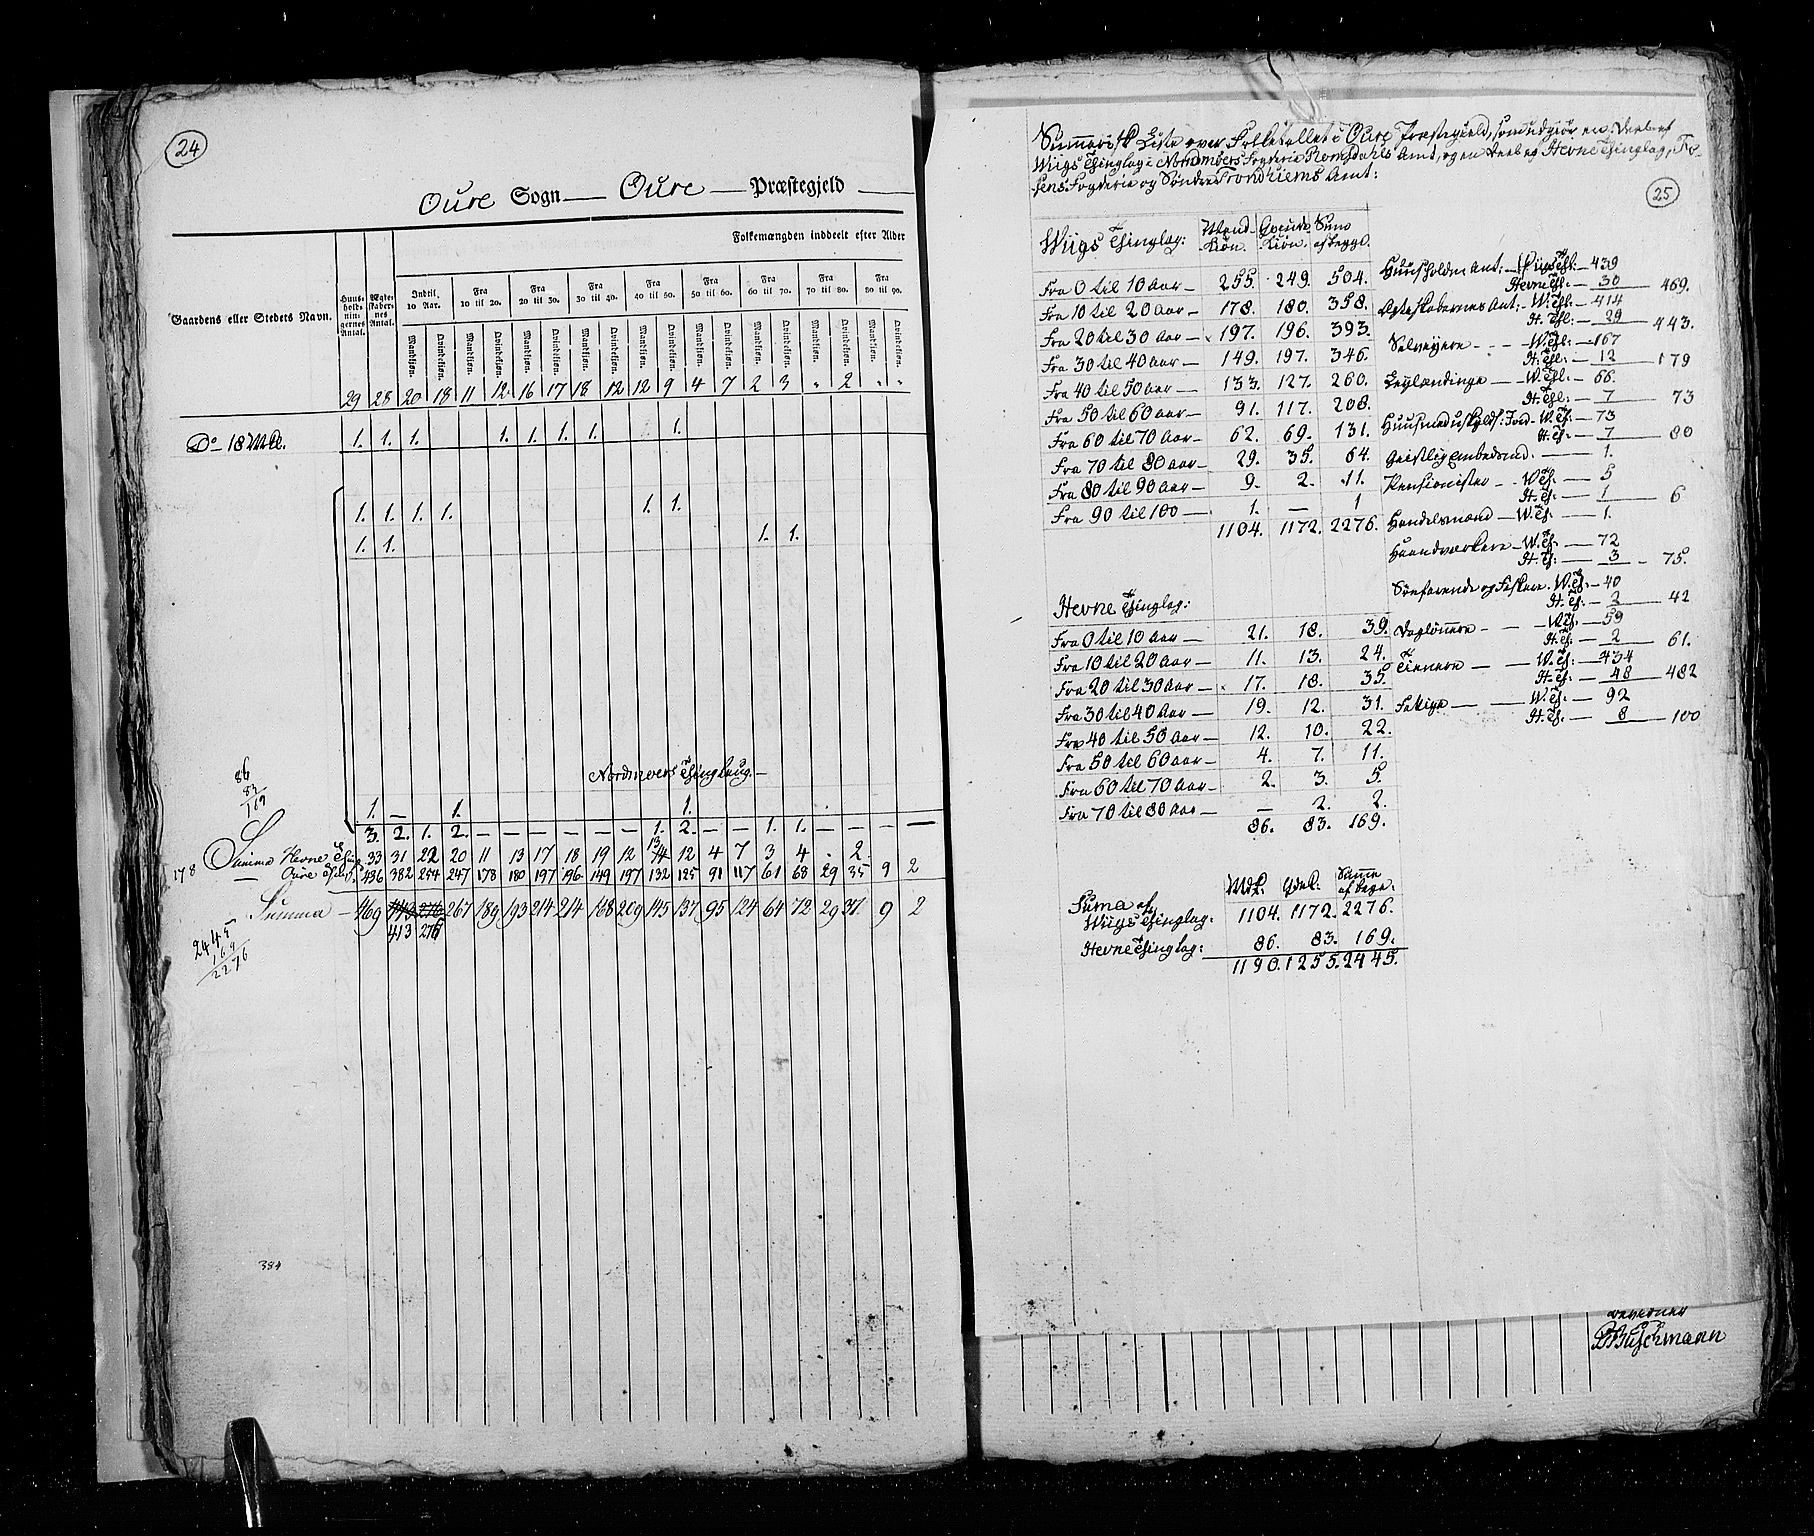 24
Oure Sogn — Oure — Præstegjeld
Folkemængden inddeelt efter Alder
Gaardens eller Stedets Navn.
Huus-holdningernes Antal.
Ægteskabernes Antal.
Indtil 10 Aar. Fra 10 til 20. Fra 20 til 30. Fra 30 til 40. Fra 40 til 50. Fra 50 til 60. Fra 60 til 70. Fra 70 til 80. Fra 80 til 90.
Mandkjøn. Qvindekjøn. Mandkjøn. Qvindekjøn. Mandkjøn. Qvindekjøn. Mandkjøn. Qvindekjøn. Mandkjøn. Qvindekjøn. Mandkjøn. Qvindekjøn. Mandkjøn. Qvindekjøn. Mandkjøn. Qvindekjøn. Mandkjøn. Qvindekjøn.
29 28 20 18 11 12 16 17 18 12 12 9 4 7 2 3 " 2 " "
Do 18 Mk. 1. 1. 1. 1. 1. 1. 1. 1.
1. 1. 1. 1. 1. 1.
1. 1. 1. 1.
86
83
169
Nordmoers Thinglaug —
1. — 1. 1.
3. 2. 1. 2. — — — — — — 1. 2. — — 1. 1. — — — —
13
Summa Hevne Thing 33 31 22 20 11 13 17 18 19 12 14 12 4 7 3 4 . 2
178 Oure 436 382 254 247 178 180 197 196 149 197 132 125 91 117 61 68 29 35 9 2
Summa — 469 443 276 267 189 193 214 214 168 209 145 137 95 124 64 72 29 37 9 2
413 276
2445
169
2276
384
Summarisk Liste over Folketallet i Oure Præstegield, som udgiør en Deel af
Wiigs Thinglag i Nordmøers Fogderie Romsdahls Amt, og en Deel af Hevne Thinglag, Fo-
sens Fogderie og Søndre Trondhiems Amt:
25
Wiigs Thinglag: Mand-Kiøn. Qvinde Kiøn. Sum af begge.
Fra 0 til 10 Aar — 255. 249. 504.
Fra 10 til 20 Aar — 178. 180. 358.
Fra 20 til 30 Aar — 197. 196. 393.
Fra 30 til 40 Aar — 149. 197. 346.
Fra 40 til 50 Aar — 133. 127. 260.
Fra 50 til 60 Aar — 91. 117. 208.
Fra 60 til 70 Aar — 62. 69. 131.
Fra 70 til 80 Aar — 29. 35. 64.
Fra 80 til 90 Aar — 9. 2. 11.
Fra 90 til 100 — 1. — 1
1104. 1172. 2276.
Hevne Thinglag:
Fra 0 til 10 Aar — 21. 18. 39.
Fra 10 til 20 Aar — 11. 13. 24.
Fra 20 til 30 Aar — 17. 18. 35.
Fra 30 til 40 Aar — 19. 12. 31.
Fra 40 til 50 Aar — 12. 10. 22.
Fra 50 til 60 Aar — 4. 7. 11.
Fra 60 til 70 Aar — 2. 3. 5.
Fra 70 til 80 Aar — — 2. 2.
86. 83. 169.
Mdk: Qdek: Summa af begge:
Suma af
Wiigs Thinglag: 1104. 1172. 2276.
Hevne Thinglag: 86. 83. 169.
1190. 1255. 2445.
Huusholdn. Ant: — Wiigs Thl: — 439
Hevne Thl: — 30 469.
Ægteskabernes Ant: — W. Thl: — 414
H. Thl: — 29 443.
Selveyere — W. Thl: — 167
H. Thl: — 12 179
Leylændinge — W. Thl: — 66.
H. Thl: — 7 73
Huusmænd — W. Th: — 73
H. Th: — 7 80
Geistlig Embedsmd. — 1.
Pensionister — W. Th: — 5
H. Th: — 1 6
Handelsmænd — W. Th: — 1.
Haandværkere — W. Th: — 72
H. Th: — 3 — 75.
Søefarende og Fiskere. W. Th: — 40
H. Th: — 2 42
Daglønnere — W. Th: — 59
H. Th: — 2 61.
Tienere — W. Th: — 434
H. Th: — 48 482
Fattige — W. Th: — 92
H. Th: — 8 100
Buschmann